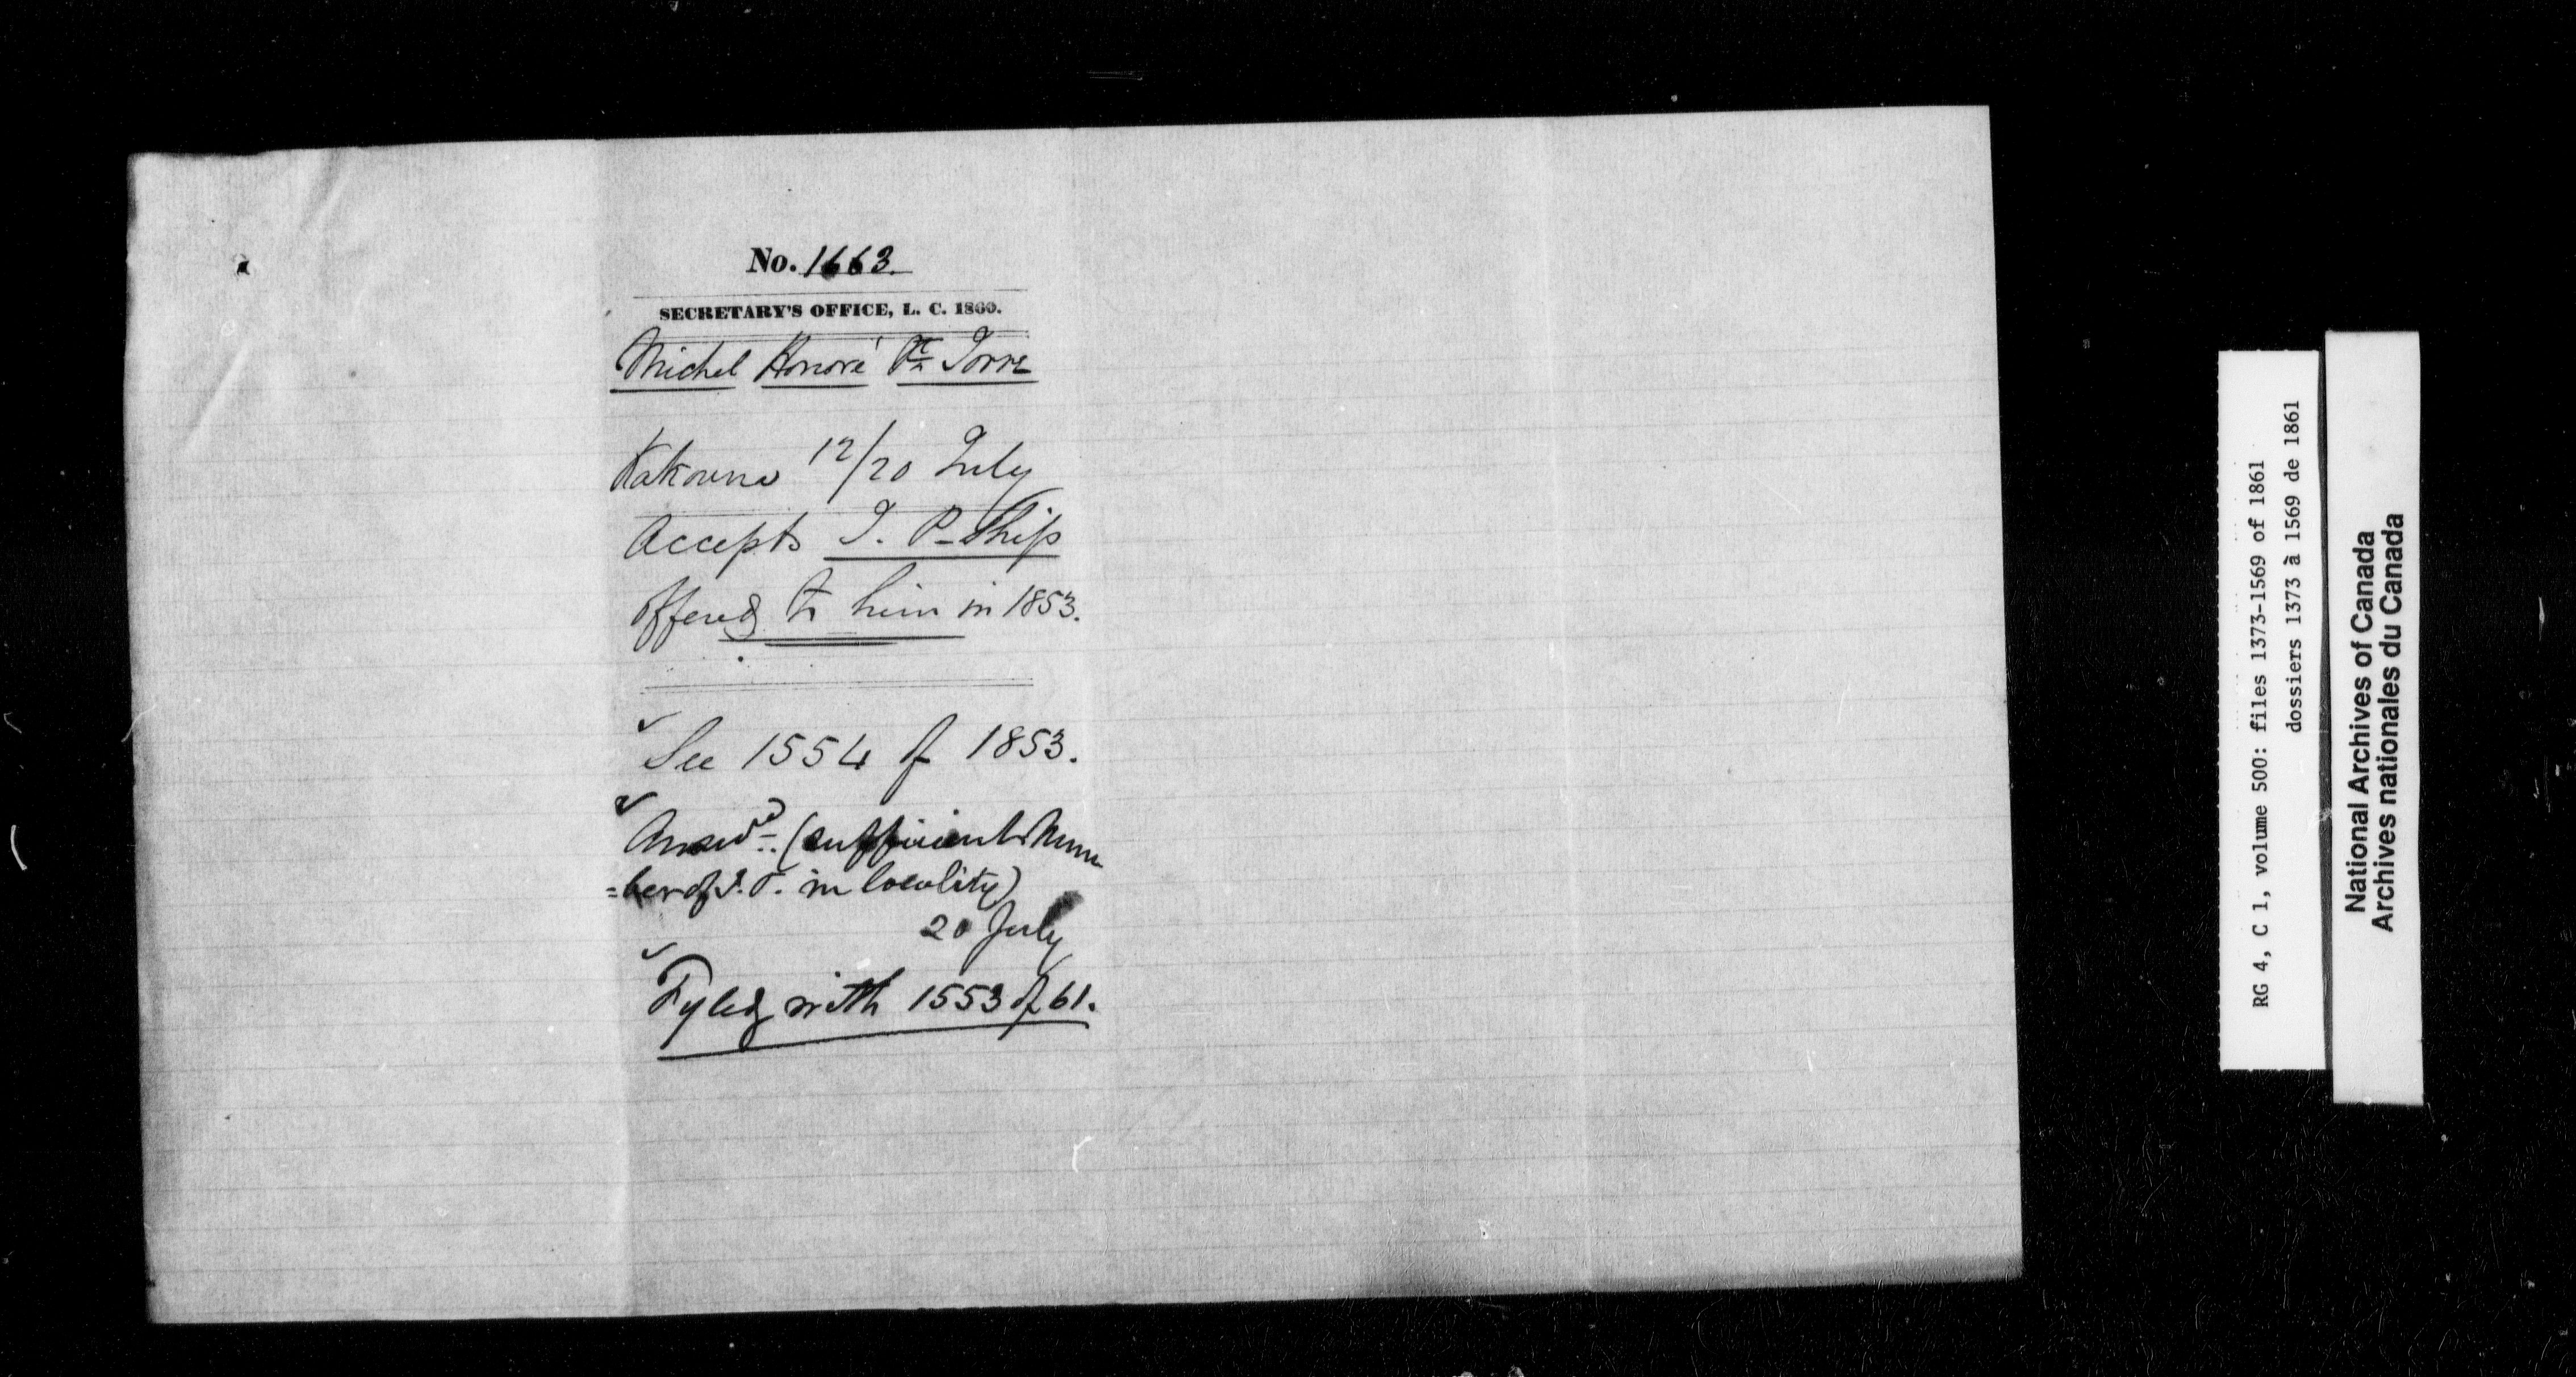 No. 1663.
SECRETARY'S OFFICE, L. C. 1860.
Michel Honoré
Kakouna 12/20 July
Accepts J. P-Ship
offered to him in 1853.
See 1554 of 1853.
Answd. (sufficient Num
=ber of J. P. in locality)
20 July
Fyled with 1553 of 61.
RG 4, C 1, volume 500: files 1373-1569 of 1861
dossiers 1373 à 1569 de 1861
National Archives of Canada
Archives nationales du Canada